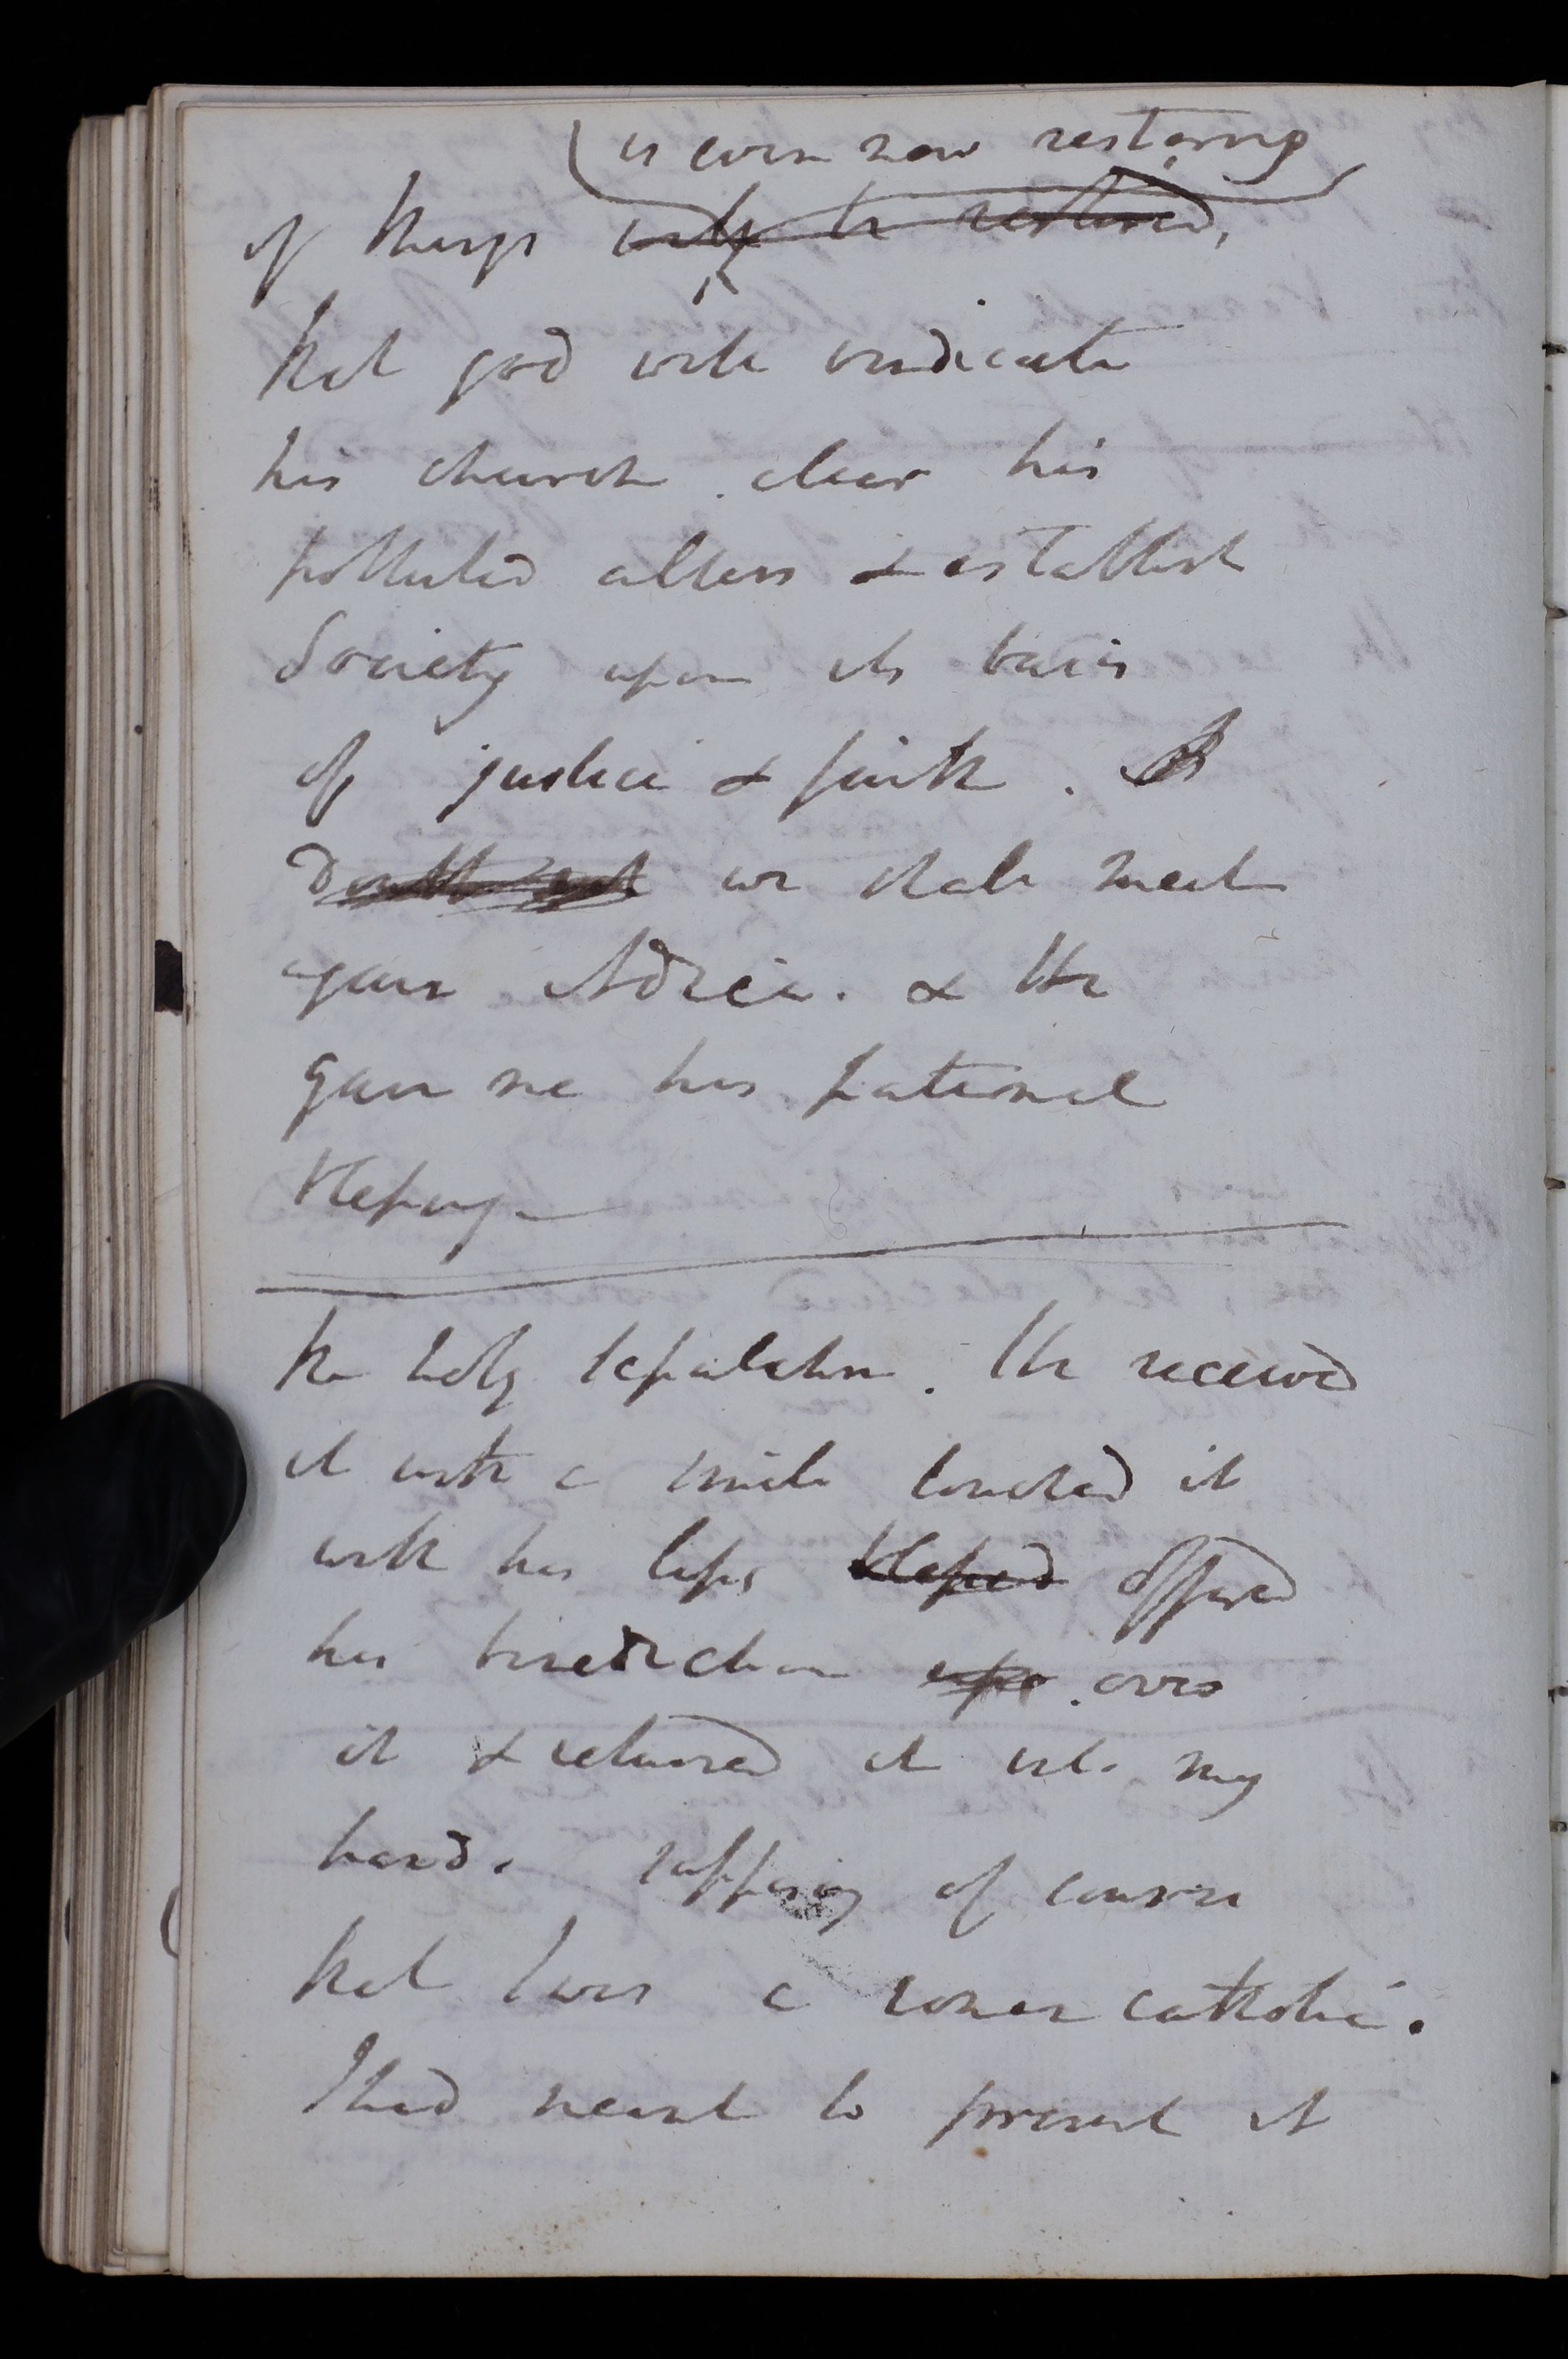 is even now restoring
of things will be restored,
that god will vindicate
his church clear his
polluted altars & establish
Society upon its basis
of justice & faith.
Doubt not we shall meet
again Adieu. & He
gave me his paternal
blessing
the holy sepulchre. He received
it with a smile touched it
with his lips blessed offered
his benediction upo over
it & returned it into my
hand. supposing of course
that I was a roman catholic.
I had meant to present it